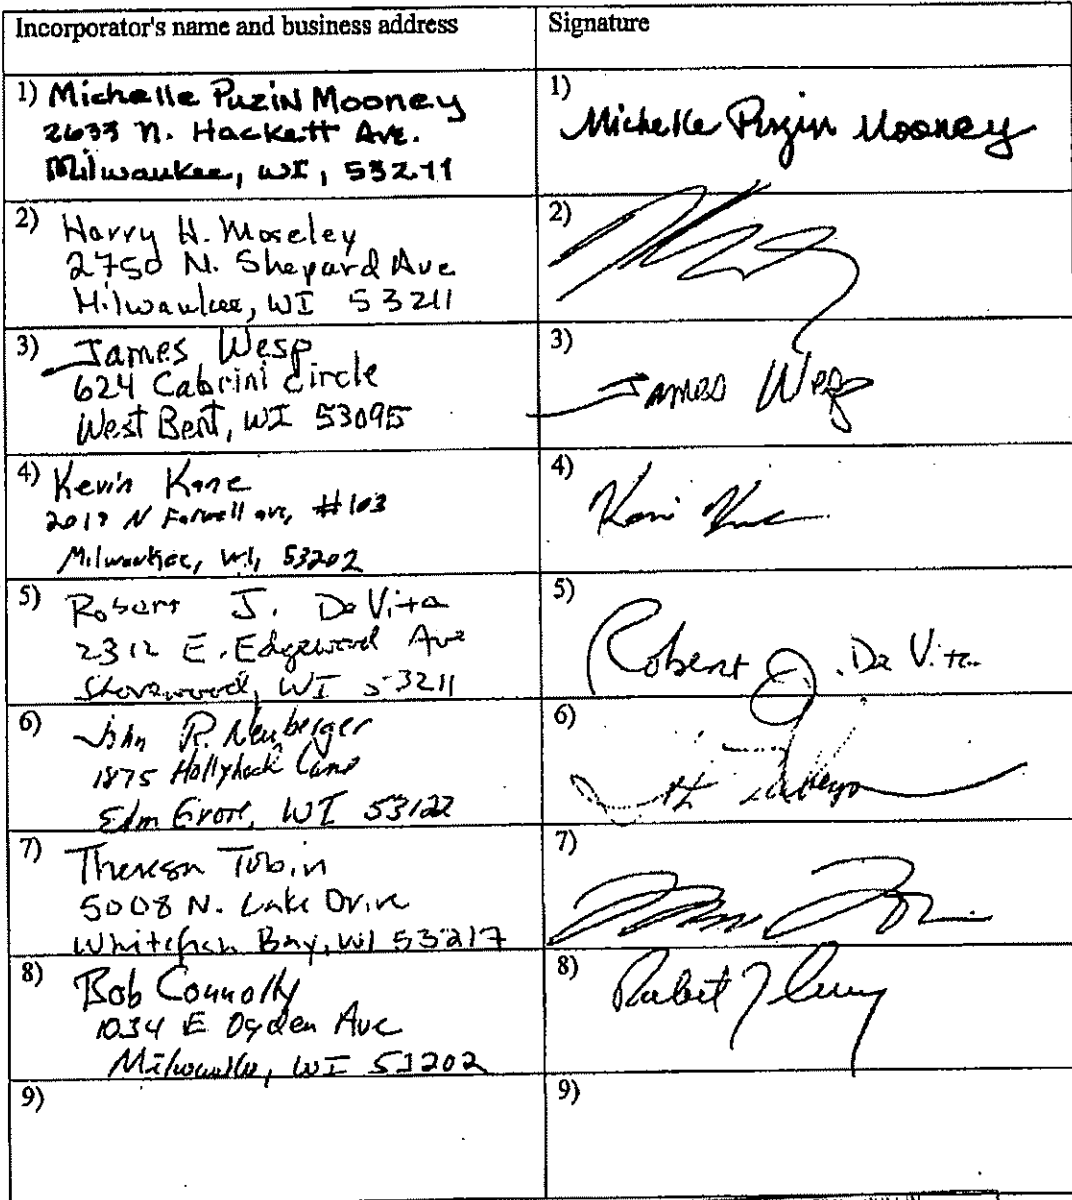 Incorporator's name and business address
Signature
1) Michelle Puzin Mooney
2633 N. Hackett Ave.
Milwaukee, WI, 53211
1)
Michelle Puzin Mooney
2) Harry H. Moseley
2750 N. Shepard Ave
Milwaukee, WI 53211
2)
3) James Wesp
624 Cabrini Circle
West Bent, WI 53095
3)
James Wesp
4) Kevin Kane
N Farwell ave, #103
Milwaukee, WI, 53202
4)
5) Robert J. DeVita
2312 E. Edgewood Ave
Shorewood, WI 53211
5)
Robert J. De Vita
6) John R. Neuberger
1875 Hollyhock Lane
Elm Grove, WI 53122
6)
7) Theresa Tobin
5008 N. Lake Drive
Whitefish Bay, WI 53217
7)
8) Bob Connolly
1034 E Ogden Ave
Milwaukee, WI 53202
8)
Robert
9)
9)